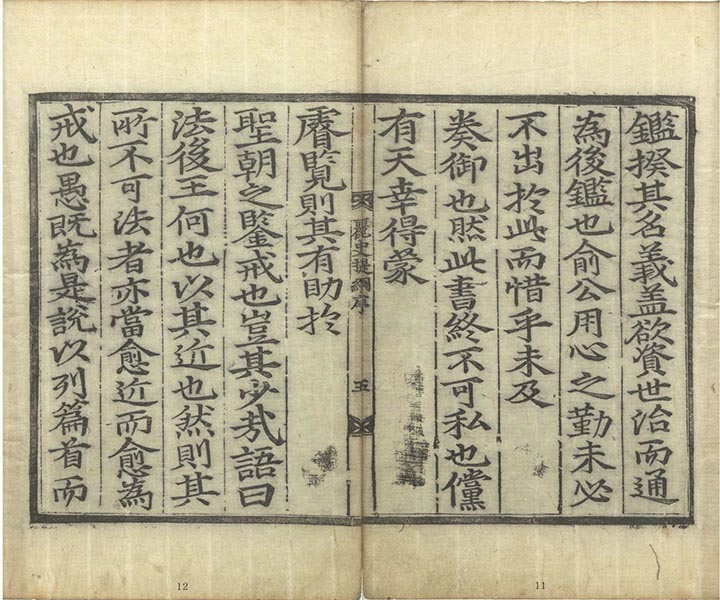 鑑揆其名義盖欲資世治而通
為後鑑也俞公用心之勤未必
不出於此而惜乎未及
奏御也然此書終不可私也儻
有天幸得蒙
麗史提綱序
五
睿覽則其有助於
聖朝之鑒戒也豈其少㢤語曰
法後王何也以其近也然則其
所不可法者亦當愈近而愈為
戒也愚既為是說以列篇首而
12
11